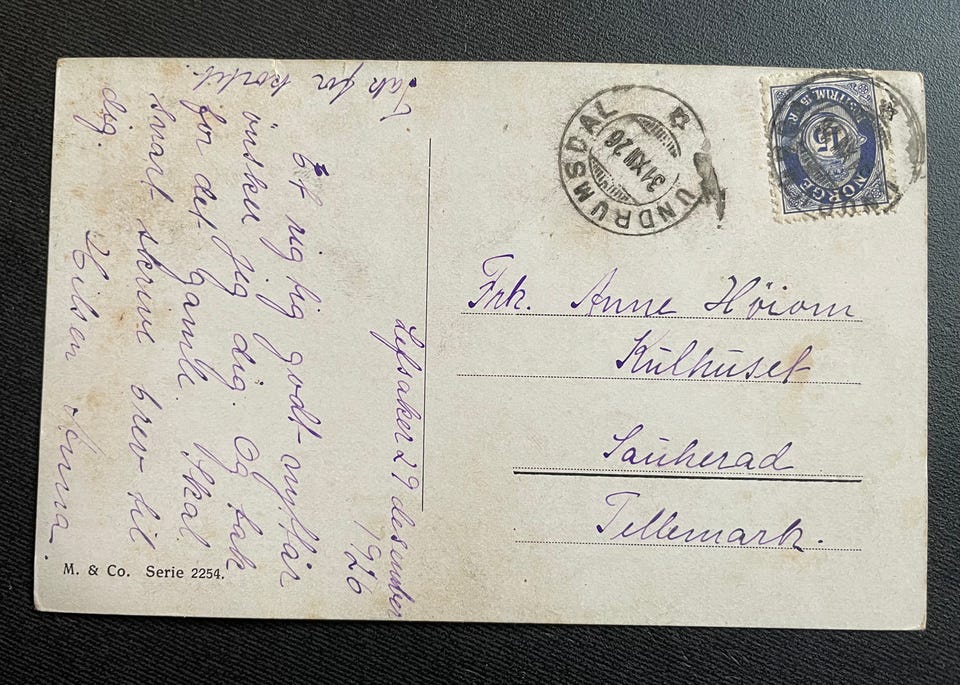 Lefsaker 29 desember
1926
Et rigtig godt nyttår
önsker jeg dig. Og tak
for det gamle. Skal
snart skrive brev til
dig. Hilsen Anna.
Tak for kortet.
UNDRUMSDAL
31 XII 26
NORGE
15
Frk. Anne Höiom
Kulhuset
Sauherad
Tellemark.
M. & Co. Serie 2254.